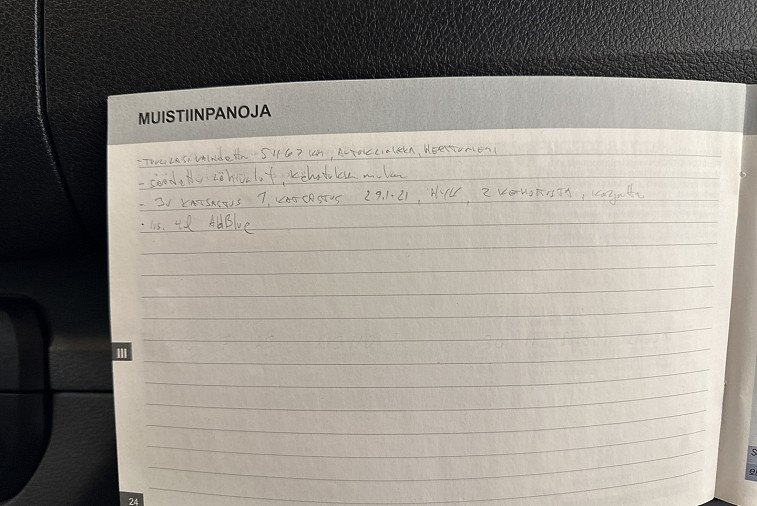 MUISTIINPANOJA
- TUULILASI VAIHDETTU 54167 KM, AUTOKLINIKKA, HERTTONIEMI
- säädetty lähivalot, kehotuksen mukaan
- 3v KATSASTUS 1, KATSASTUS 29.1.21, HYV, 2 KEHOTUSTA, korjattu
- lis. 4l AdBlue
III
24